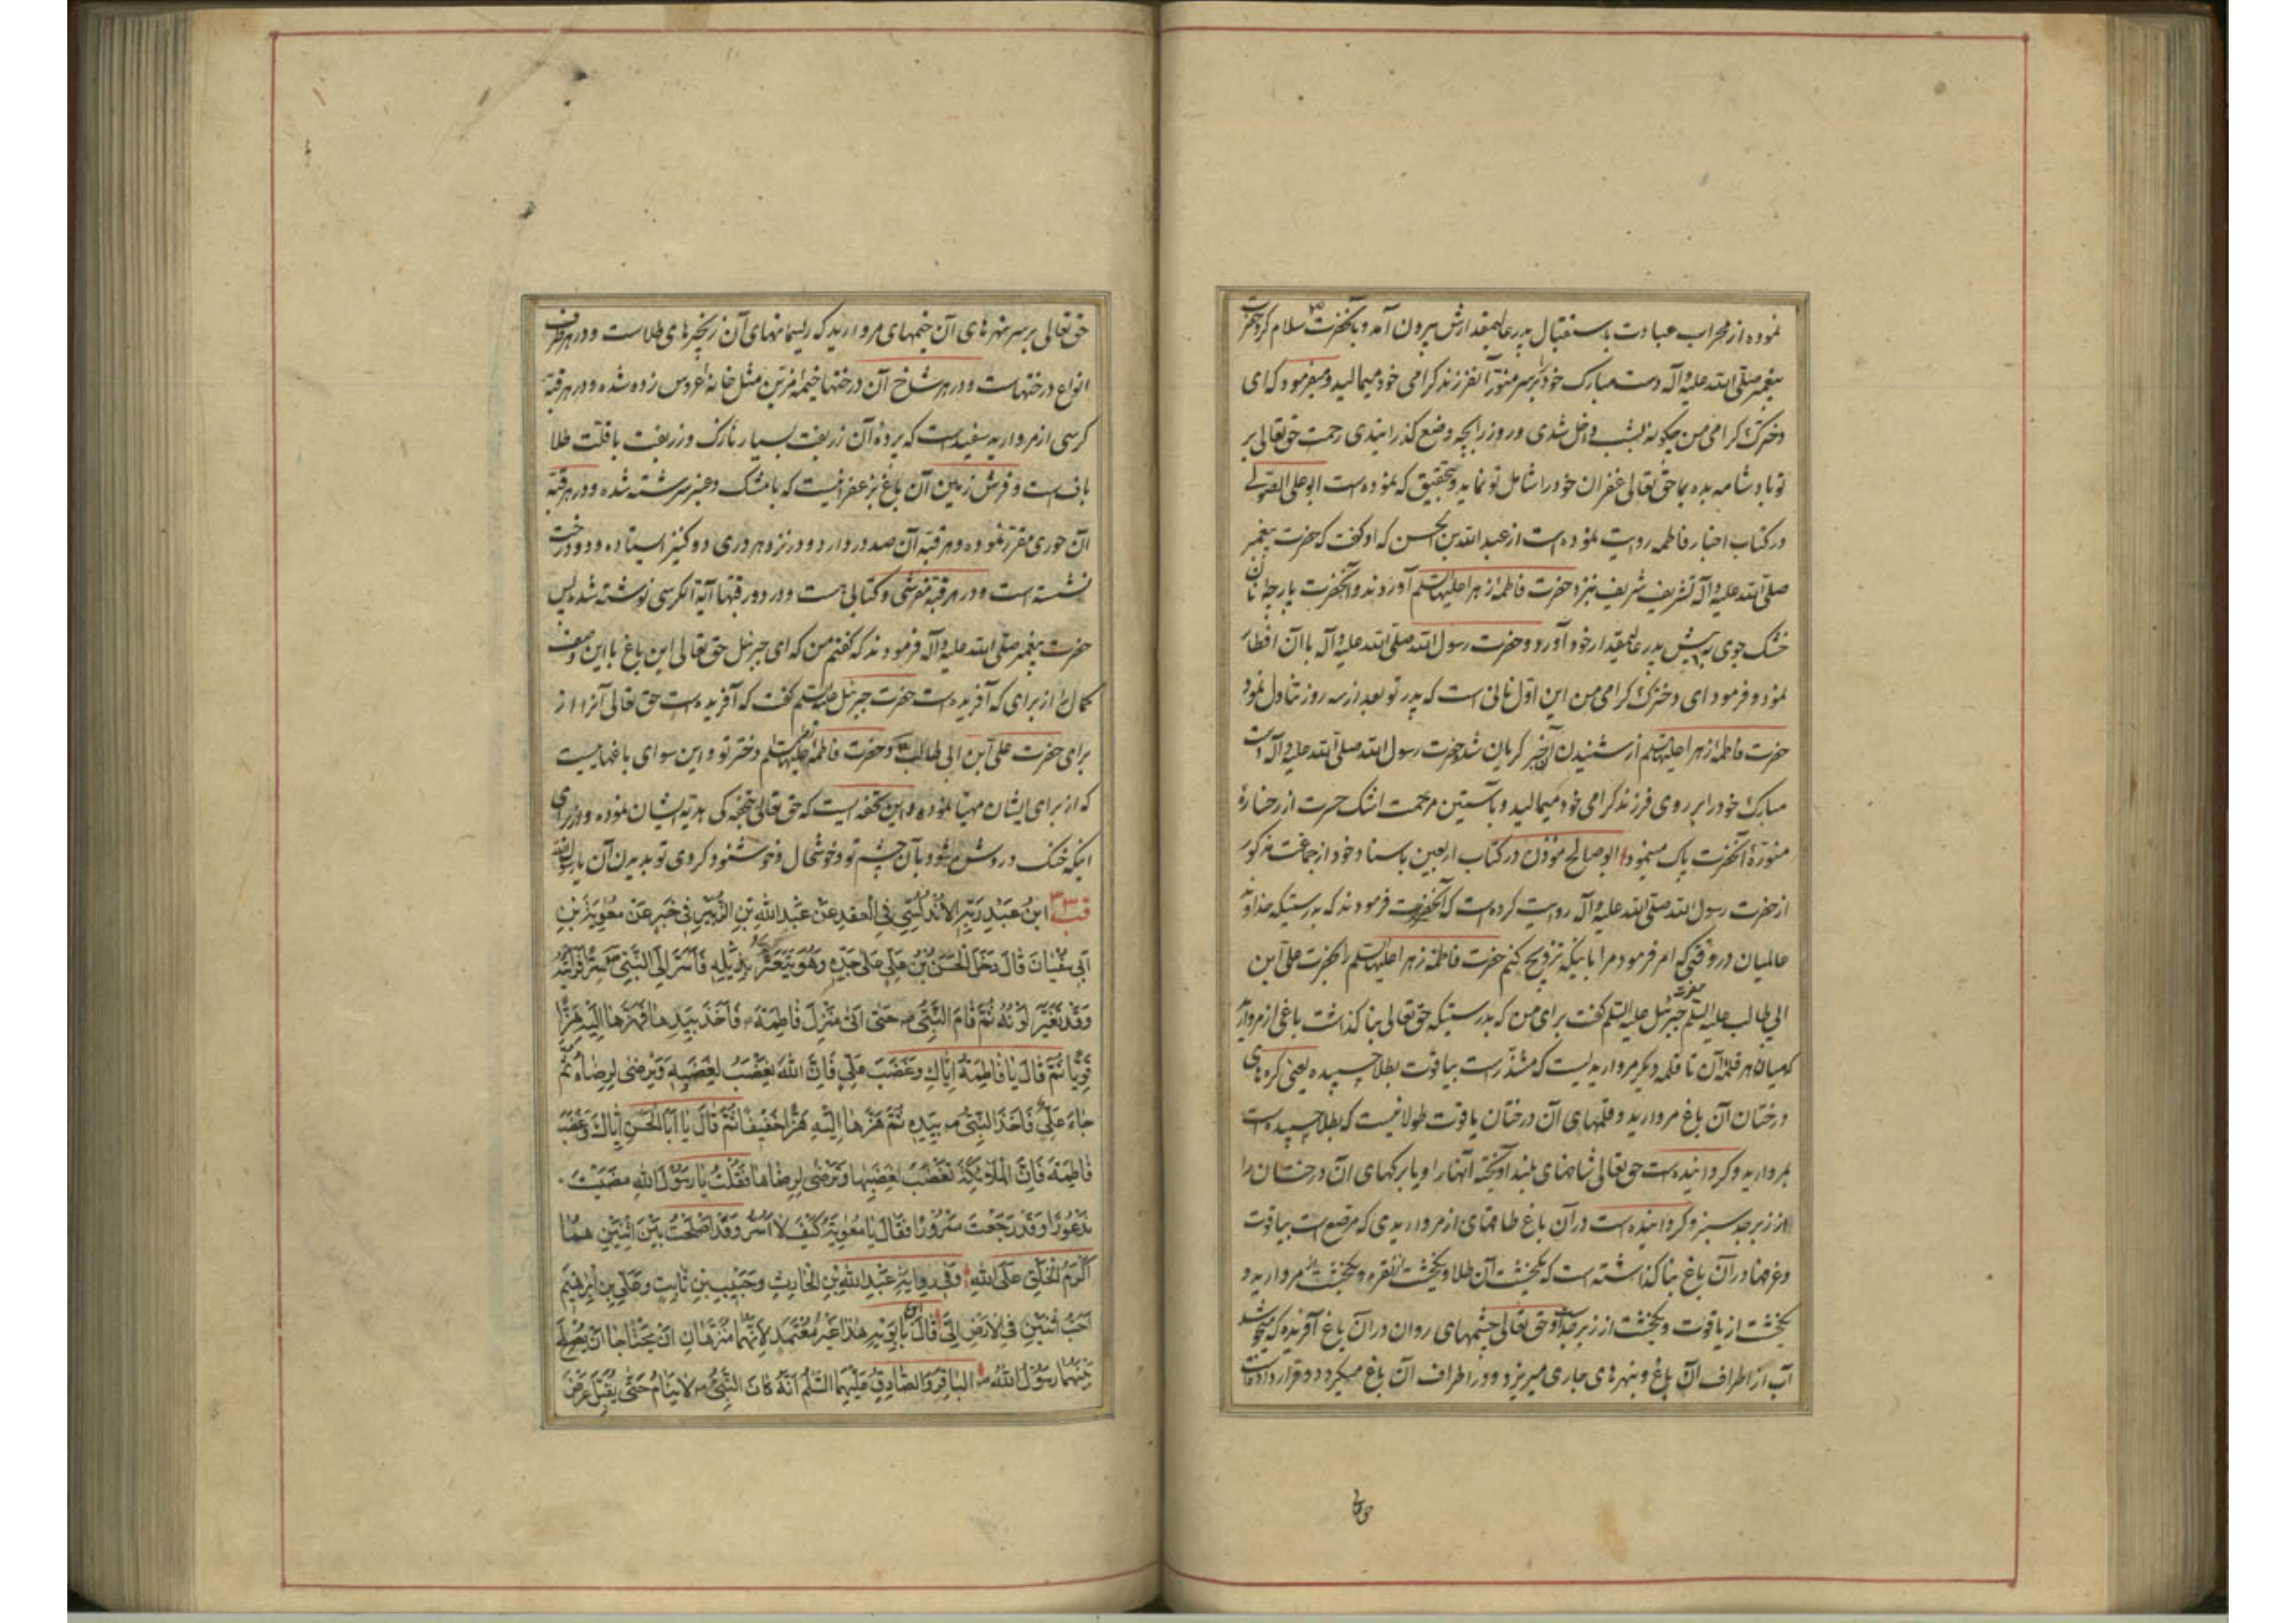 نموده از محراب عبادت باستقبال پدر عالیمقدارش بیرون آمد و بآنحضرت سلام کرد حضرت
پیغمبر صلی الله علیه وآله دست مبارک خود را بر سر منور آنفرزند کرامی خود میمالید و میفرمود که ای
دخترک کرامی من چکونه بشب داخل شدی و روز را بچه وضع کذرانیدی رحمت حق تعالی بر
تو باد شام بده بما حق تعالی غفران خود را شامل تو نماید و بتحقیق که نموده است ابو علی الصولی
در کتاب اخبار فاطمه روایت نموده است از عبد الله بن الحسن که او کفت که حضرت پیغمبر
صلی الله علیه وآله تشریف شریف بنزد حضرت فاطمه زهرا علیها السلم آوردند و آنحضرت پارچه نان
خشک جوی به پیش پدر عالیمقدار خود آورد و حضرت رسول الله صلی الله علیه وآله با آن افطار
نمود و فرمود ای دخترک کرامی من این اول نانی است که پدر تو بعد از سه روز تناول نمود
حضرت فاطمه زهرا علیها السلم از شنیدن این خبر کریان شد حضرت رسول الله صلی الله علیه وآله دست
مبارک خود را بر روی فرزند کرامی خود میمالید و با آستین مرحمت اشک حسرت از رخسارهٔ
منورهٔ آنحضرت پاک مینمود ابو صالح مؤذن در کتاب اربعین باسناد خود از جماعت مذکور
از حضرت رسول الله صلی الله علیه وآله روایت کرده است که آنحضرت فرمودند که بدرستیکه خداوند
عالمیان در وقتی که امر فرمود مرا باینکه تزویج کنم حضرت فاطمه زهرا علیها السلم را بحضرت علی ابن
ابی طالب علیه السلم حضرت جبرئیل علیه السلم کفت برای من که بدرستیکه حق تعالی بنا کذاشت باغی از مروارید
که میان هر قلمهٔ آن تا قلمه دیکر مرواریدیست که مشذر است بیاقوت بطلا چسپیده یعنی کره های
درختان آن باغ مروارید و قلمهای آن درختان یاقوت طولانیست که بطلا چسپیده است
بمروارید و کردانیده است حق تعالی شاخهای بلند آویخته آنها را و یا برکهای آن درختان را
از زبرجد سبز و کردانیده است در آن باغ طاقهای از مرواریدی که مرصع است بیاقوت
و غرفها در آن باغ بنا کذاشته است که یکخشت آن طلا و یکخشت نقره و یکخشت از مروارید و
یکخشت از یاقوت و یکخشت از زبرجد است و حق تعالی چشمهای روان در آن باغ آفریده که میجوشد
آب از اطراف آن باغ و بنهرهای جاری میریزد و در اطراف آن باغ میکردد و قرار داده است
حق تعالی
حق تعالی بر سر نهرهای آن خیمهای مروارید که ریسمانهای آن زنجیرهای طلاست و در هر طرف
انواع درختهاست و در هر شاخ آن درختها خیمهٔ مزین مثل خانهٔ عروس زده شده و در هر قبهٔ
کرسی از مروارید سفید است که پردهٔ آن زربفت بسیار نازک و زربفت با قلت طلا
باف است و فرش زمین آن باغ بزعفرانیست که با مشک و عنبر سرشته شده و در هر قبه
آن حوری مقرر نموده و هر قبه آن صد در دارد و در نزد هر دری دو کنیز ایستاده و دو درخت
نشسته است و در هر قبه مفرشی و کتابی هست و در دور قبها آیة الکرسی نوشته شده پس
حضرت پیغمبر صلی الله علیه وآله فرمودند که کفتم من که ای جبرئیل حق تعالی این باغ با این وصف
کمال را از برای که آفریده است حضرت جبرئیل علیه السلم کفت که آفریده است حق تعالی آنرا از
برای حضرت علی ابن ابی طالب و حضرت فاطمه زهرا علیها السلم دختر تو و این سوای باغهاییست
که از برای ایشان مهیا نموده و این تحفه ایست که حق تعالی بهدیه ایشان نموده و از برای
اینکه خنک و روشن شود بآن چشم تو و خوشحال و خوشنود کردی تو بدیدن آن یا رسول الله
ابن عَبْد رَبِّهِ الأَنْدُلُسِي في العقد عن عَبدِ الله بنِ الزُّبَيْرِ في خَبَرٍ عن مُعٰوِيَةَ بنِ
ابي سُفْيٰانَ قالَ دَخَلَ الحَسَنُ بنُ عَلِيٍّ عَلىٰ جَدِّهِ وَهُوَ يَتَعَثَّرُ بِذَيْلِهِ فَأَسَرَّ الَى النَّبِيِّ ص سِرًّا فَرَأَيْتُهُ
وَقَدْ تَغَيَّرَ لَوْنُهُ ثُمَّ قامَ النَّبِيُّ ص حَتّىٰ اَتىٰ مَنْزِلَ فاطِمَةَ فَأَخَذَ بِيَدِهٰا فَهَزَّهٰا اِلَيْهِ هَزًّا
قَوِيًّا ثُمَّ قالَ يا فاطِمَةُ اِيّٰاكِ وَغَضَبَ عَلِيٍّ فَاِنَّ اللهَ يَغْضَبُ لِغَضَبِهِ وَيَرْضىٰ لِرِضٰاهُ ثُمَّ
جٰاءَ عَلِيٌّ فَأَخَذَ النَّبِيُّ ص بِيَدِهِ ثُمَّ هَزَّهٰا اِلَيْهِ هَزًّا خَفِيفًا ثُمَّ قالَ يا اَبَا الحَسَنِ اِيّٰاكَ وَغَضَبَ
فاطِمَةَ فَاِنَّ المَلائِكَةَ تَغْضَبُ لِغَضَبِهٰا وَتَرْضىٰ لِرِضٰاهٰا فَقُلْتُ يا رَسُولَ اللهِ مَضَيْتَ
مَذْعُورًا وَقَدْ رَجَعْتَ مَسْرُورًا فَقالَ يا مُعٰوِيَةُ كَيْفَ لا اُسَرُّ وَقَدْ اَصْلَحْتُ بَيْنَ اثْنَيْنِ هُمٰا
اَكْرَمُ الخَلْقِ عَلَى اللهِ وَفي رِوايَةِ عَبْدِ اللهِ بنِ الحٰارِثِ وَحَبِيبِ بنِ ثابِتٍ وَعَلِيِّ بنِ اِبْرٰهِيمَ
اَحَبُّ اثْنَيْنِ في الأَرْضِ اِلَيَّ قالَ ابن بٰابَوَيْهِ هٰذا غَيْرُ مُعْتَمَدٍ لِأَنَّهُمٰا مُنَزَّهٰانِ اَنْ يَحْتٰاجٰا اَنْ يُصْلِحَ
بَيْنَهُمٰا رَسُولُ اللهِ ص البٰاقِرُ وَالصّٰادِقُ عَلَيْهِمَا السَّلٰمُ اَنَّهُ كٰانَ النَّبِيُّ ص لا يَنٰامُ حَتّىٰ يُقَبِّلَ عَرْضَ